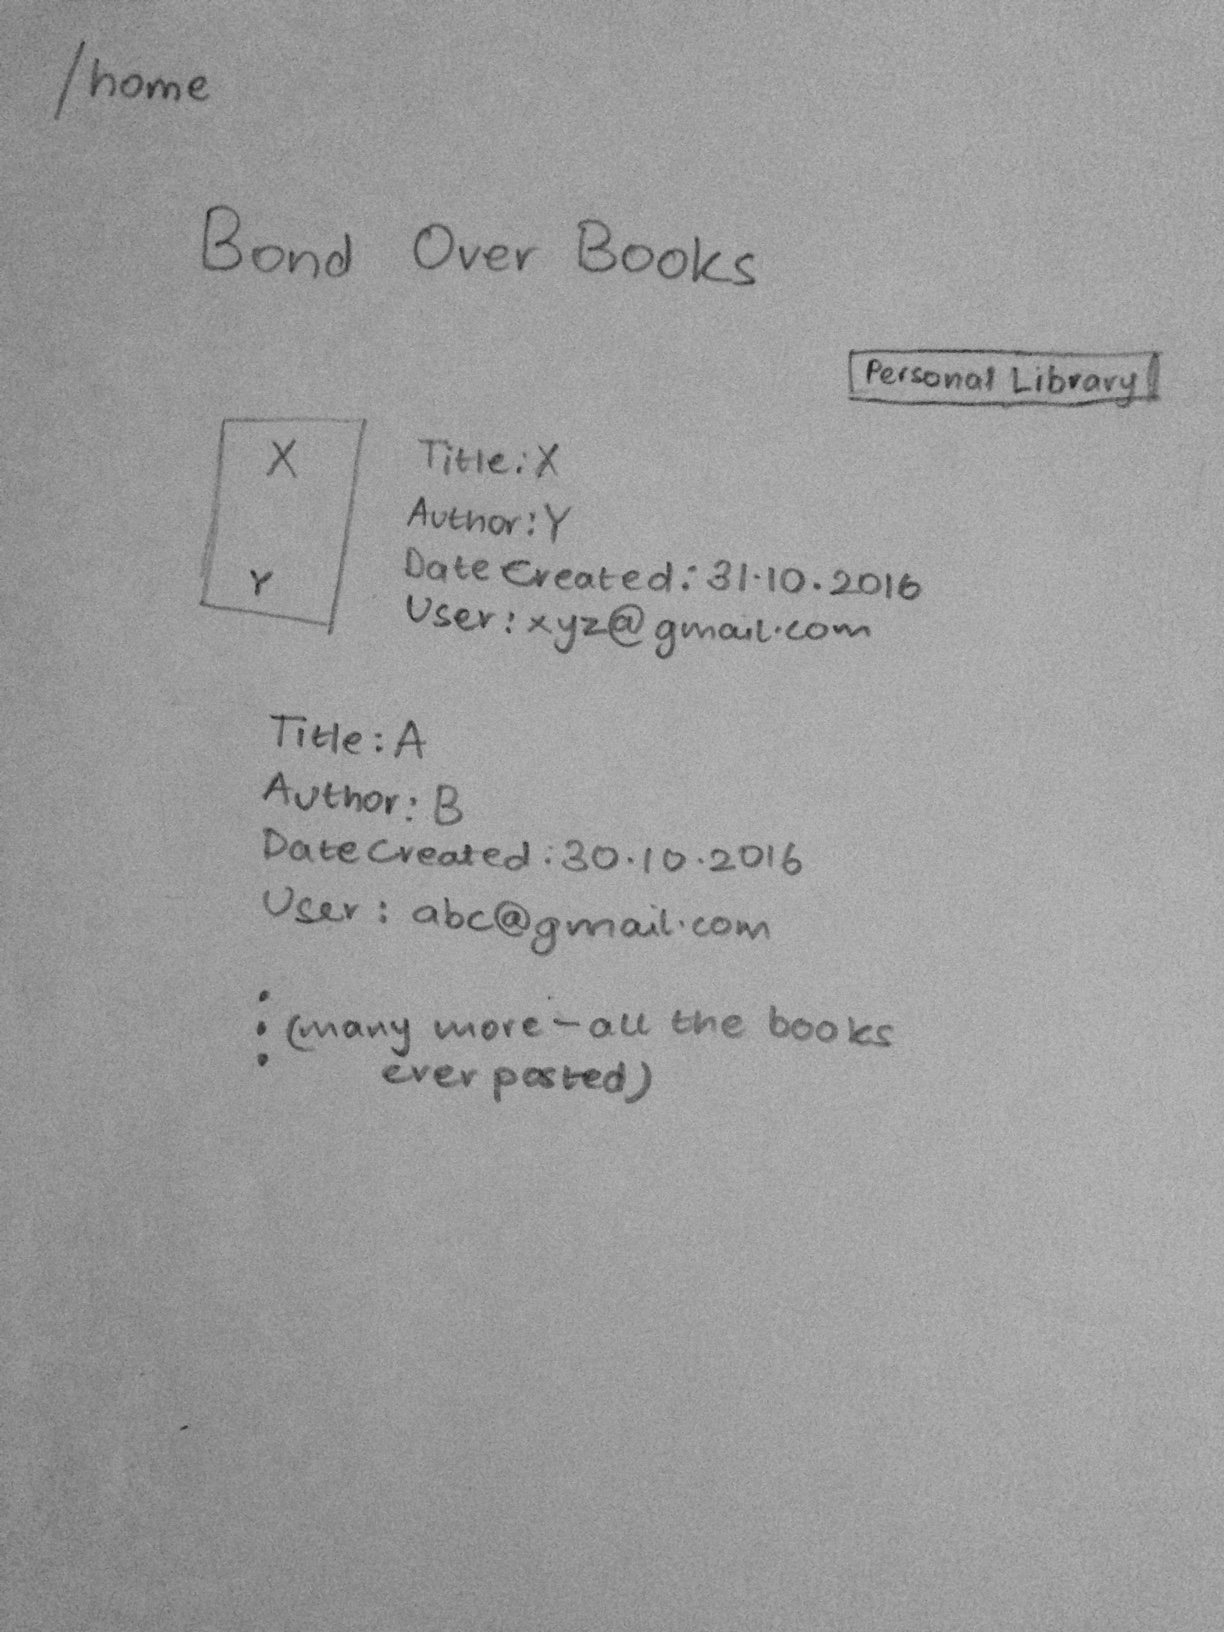 /home
Bond Over Books
Personal Library
X
Y
Title: X
Author: Y
Date Created: 31.10.2016
User: xyz@gmail.com
Title: A
Author: B
Date Created: 30.10.2016
User: abc@gmail.com
(many more - all the books
ever posted)